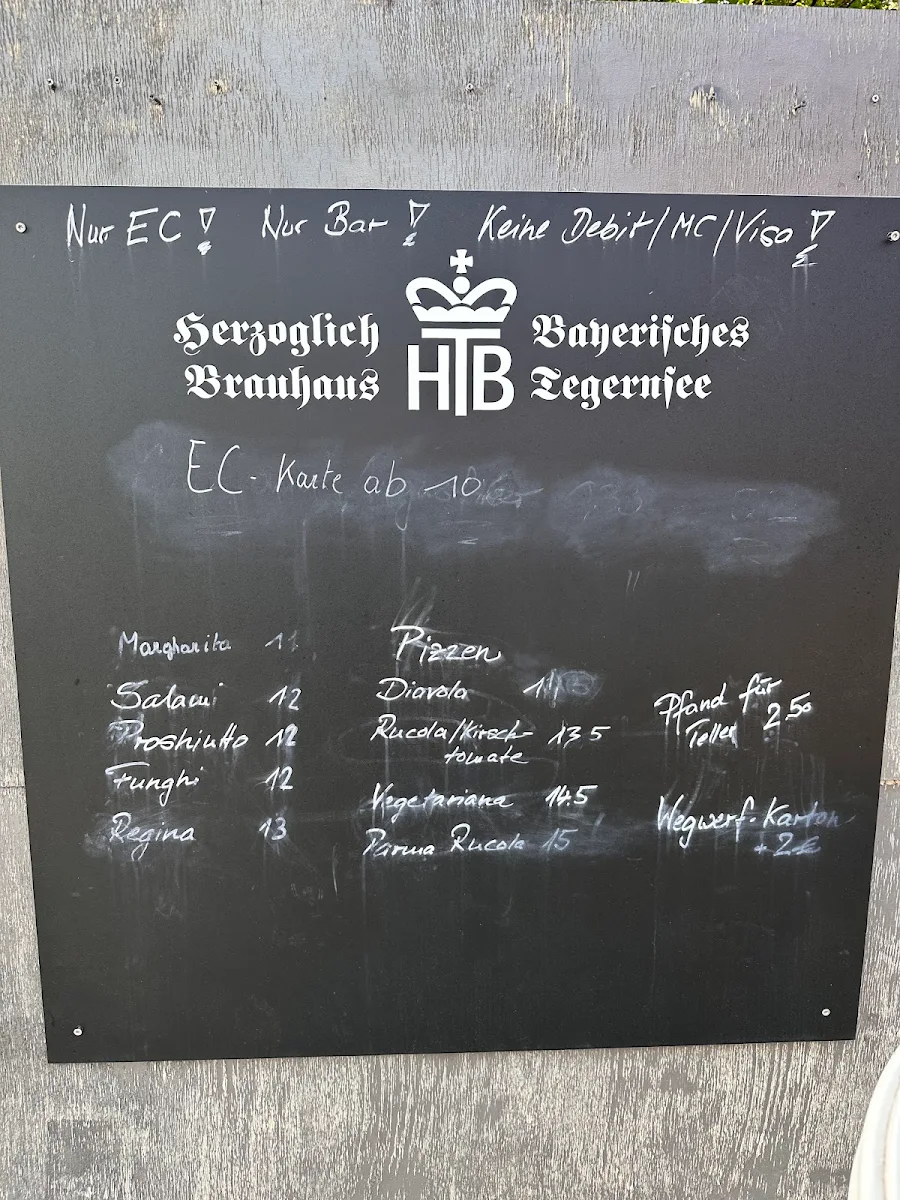 Nur EC! Nur Bar! Keine Debit/MC/Visa!
Herzoglich Bayerisches
Brauhaus HTB Tegernsee
EC-Karte ab 10
Pizzen
Margharita 11
Salami 12
Proshiutto 12
Funghi 12
Regina 13
Diavola
Rucola/Kirsch-
tomate 13.5
Vegetariana 14.5
Parma Rucola 15
Pfand für
Teller 2.50
Wegwerf-Karton
+ 2€